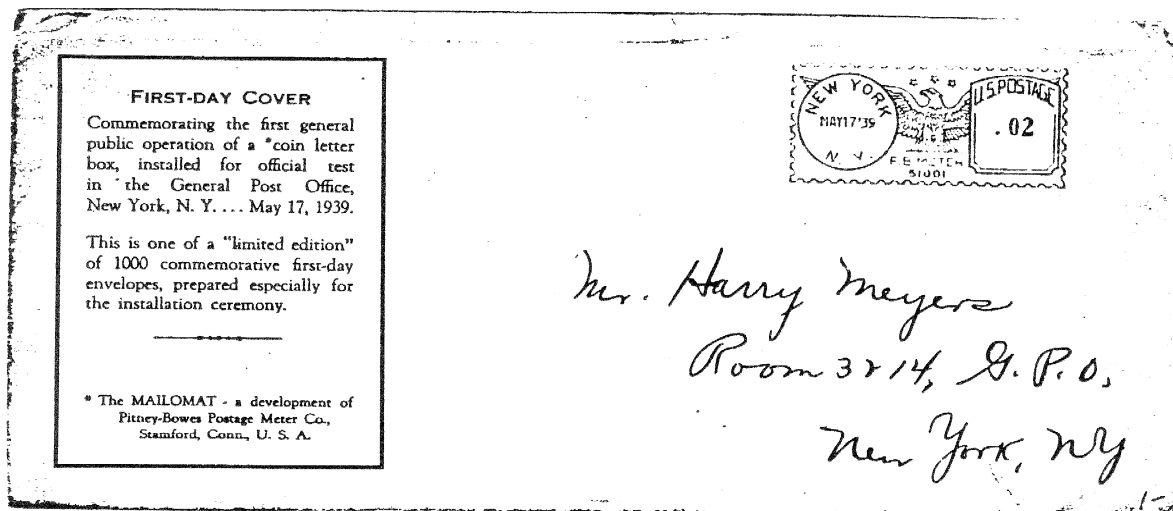 FIRST-DAY COVER
Commemorating the first general
public operation of a *coin letter
box, installed for official test
in the General Post Office,
New York, N. Y.... May 17, 1939.
This is one of a "limited edition"
of 1000 commemorative first-day
envelopes, prepared especially for
the installation ceremony.
* The MAILOMAT - a development of
Pitney-Bowes Postage Meter Co.,
Stamford, Conn., U. S. A.
NEW YORK
MAY 17 '39
N. Y.
U.S. POSTAGE
.02
P.B. METER
51001
Mr. Harry Meyers
Room 3214, G. P. O.,
New York, NY